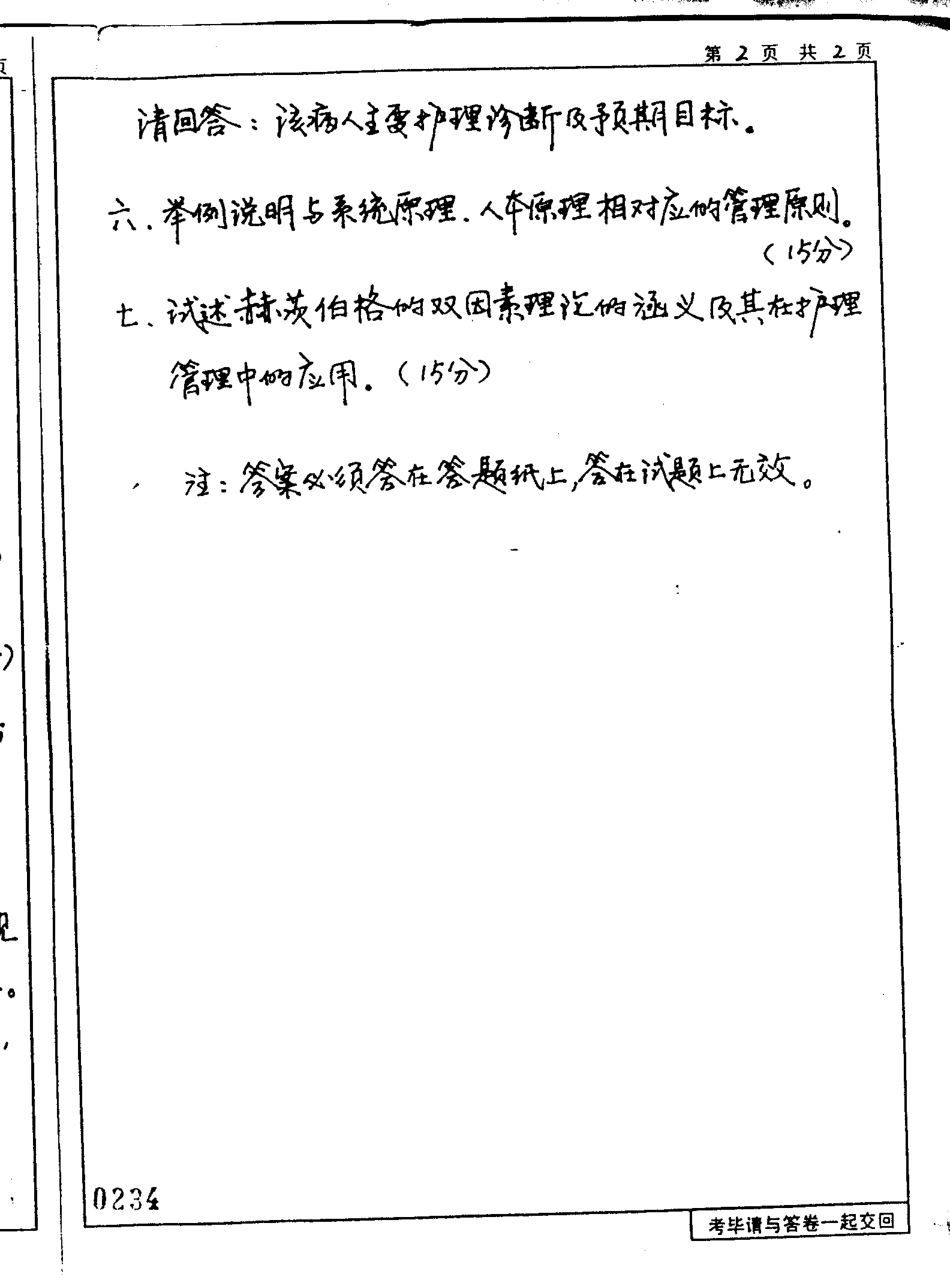 第 2 页 共 2 页
请回答：该病人主要护理诊断及预期目标。
六、举例说明与系统原理、人本原理相对应的管理原则。
（15分）
七、试述赫茨伯格的双因素理论的涵义及其在护理
管理中的应用。（15分）
注：答案必须答在答题纸上，答在试题上无效。
0234
考毕请与答卷一起交回